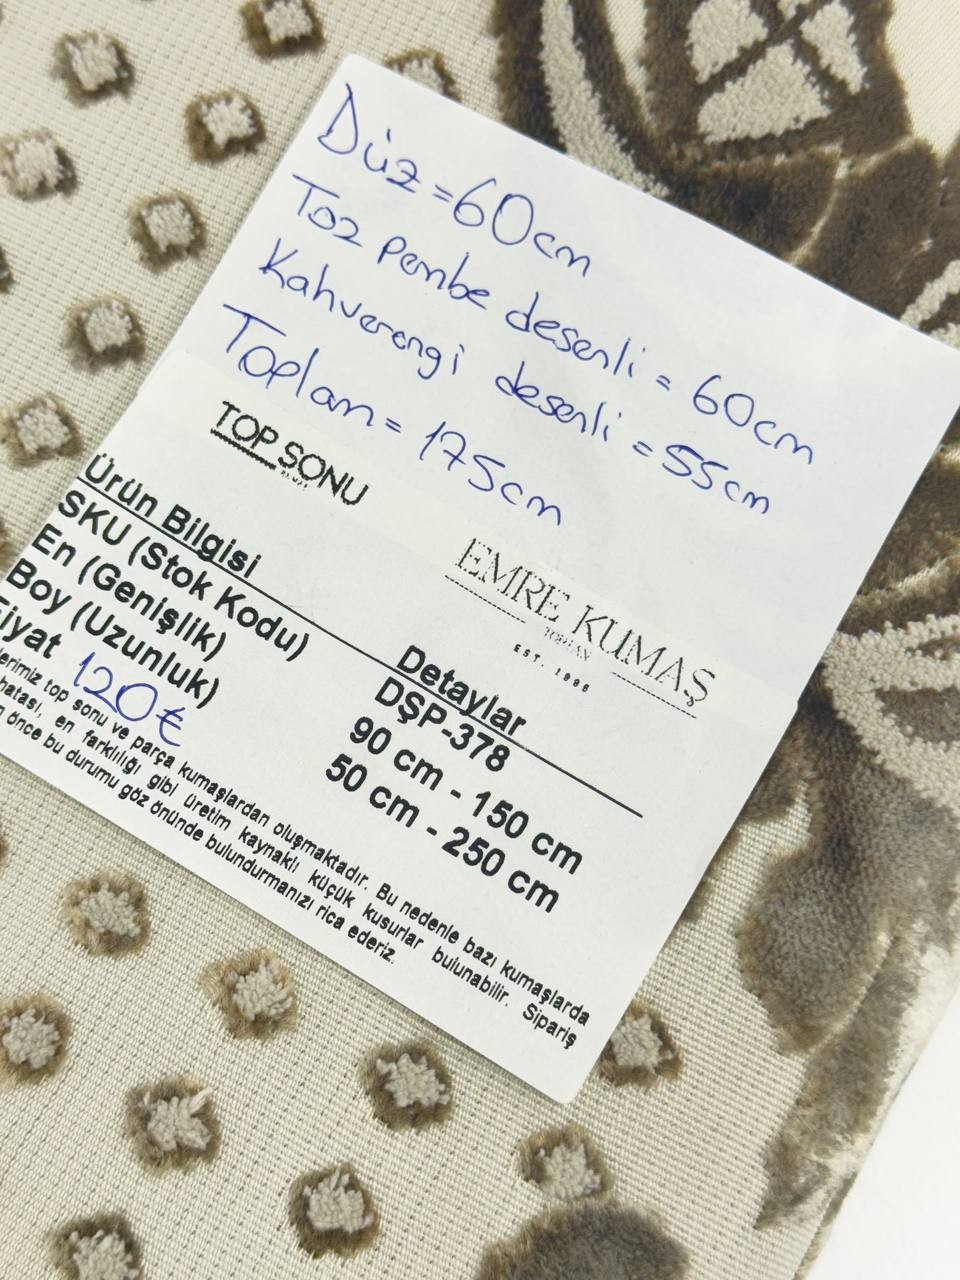 Düz = 60cm
Toz pembe desenli = 60cm
Kahverengi desenli = 55cm
Toplam = 175cm
TOP SONU
EMRE KUMAŞ
EST. 1995
Ürün Bilgisi Detaylar
SKU (Stok Kodu) DŞP-378
En (Genişlik) 90 cm - 150 cm
Boy (Uzunluk) 50 cm - 250 cm
Fiyat 120€
top sonu ve parça kumaşlardan oluşmaktadır. Bu nedenle bazı kumaşlarda
hatası, en farklılığı gibi üretim kaynaklı küçük kusurlar bulunabilir. Sipariş
önce bu durumu göz önünde bulundurmanızı rica ederiz.